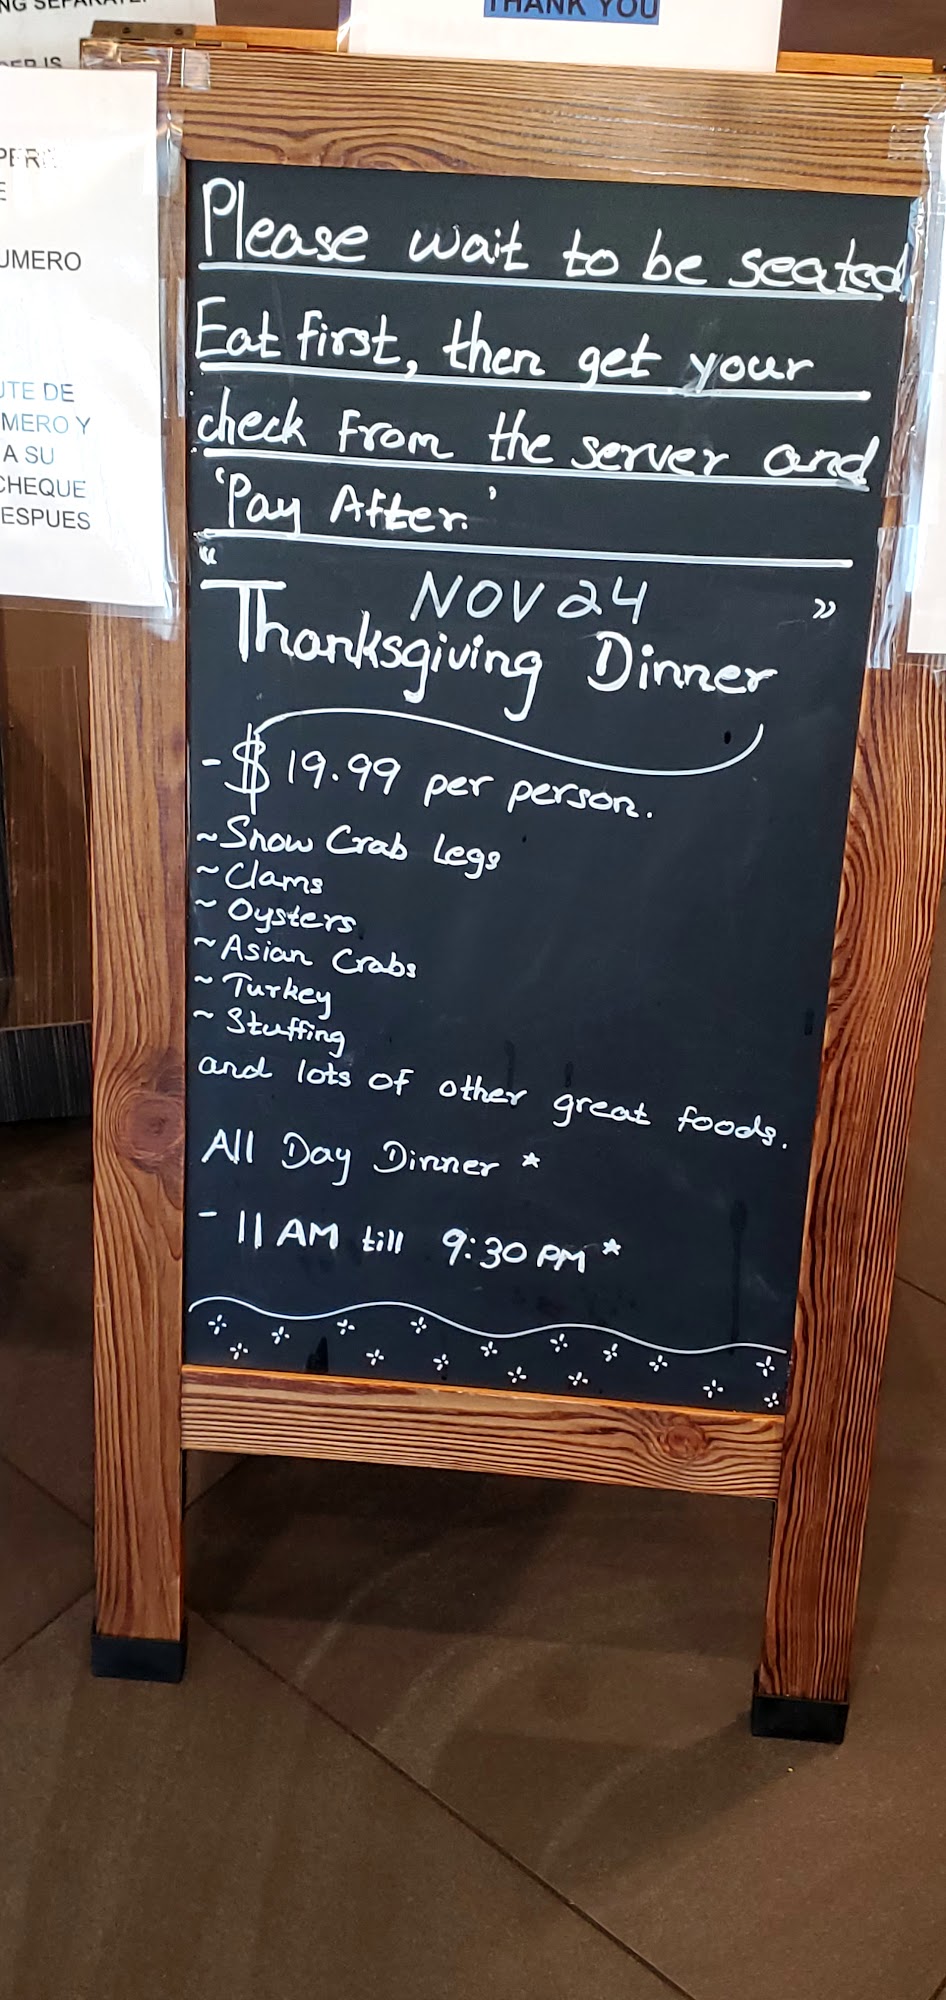 THANK YOU
NG SEPARATE.
UMERO
UTE DE
MERO Y
A SU
CHEQUE
ESPUES
Please wait to be seated
Eat first, then get your
check from the server and
'Pay After.'
"
NOV 24 "
Thanksgiving Dinner
- $ 19.99 per person.
~ Snow Crab Legs
~ Clams
~ Oysters
~ Asian Crabs
~ Turkey
~ Stuffing
and lots of other great foods.
All Day Dinner *
- 11 AM till 9:30 PM *